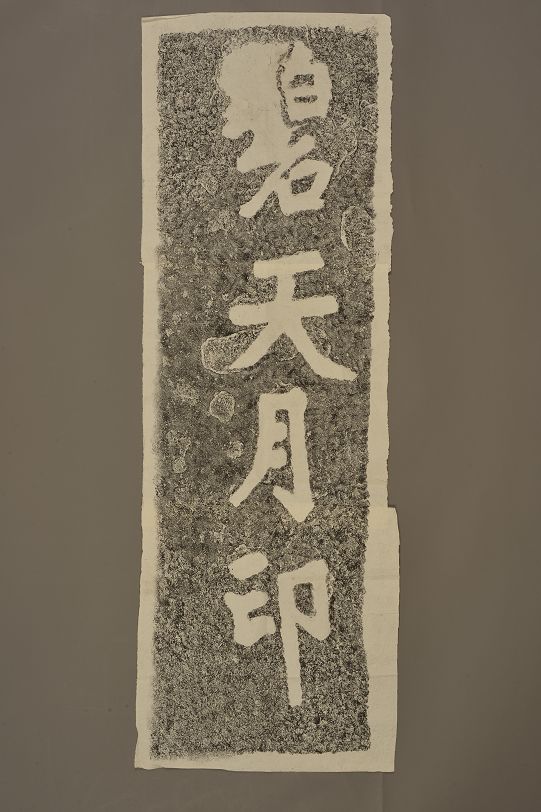 碧天月印